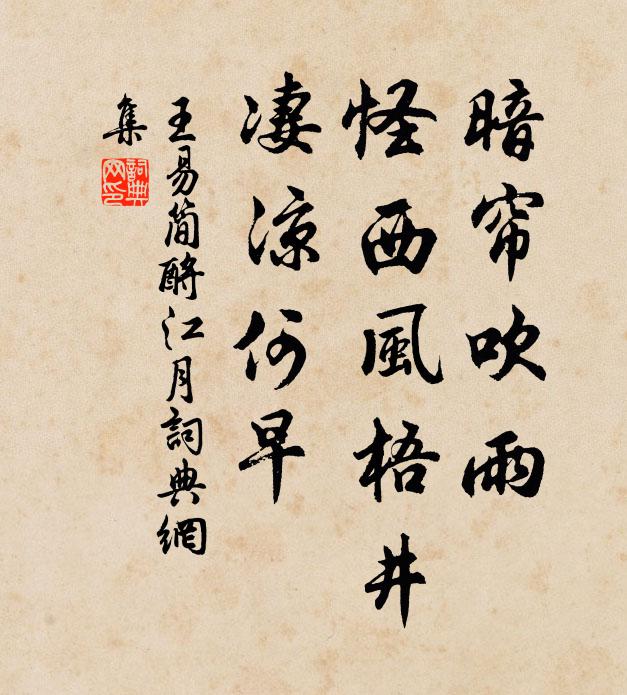 暗帘吹雨
怪西風梧井
淒涼何早
王易簡酹江月詞典網
集
詞典网印